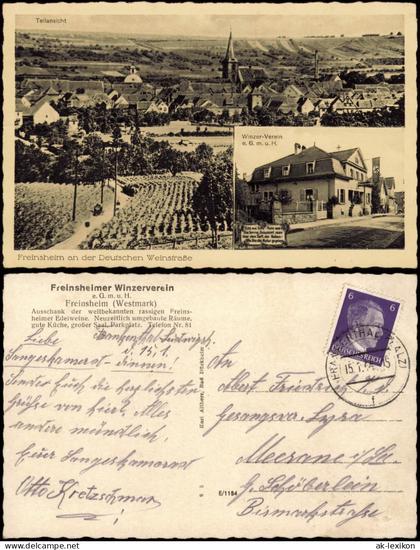 Teilansicht
Winzer-Verein
e. G. m. u. H.
Freinsheim an der Deutschen Weinstraße
Freinsheimer Winzerverein
e. G. m. u. H.
Freinsheim (Westmark)
Ausschank der weltbekannten rassigen Freins-
heimer Edelweine. Neuzeitlich umgebaute Räume,
gute Küche, großer Saal, Parkplatz. Telefon Nr. 81
Frankenthal
d. 15.1.
Liebe
Sangeskamerad-innen!
Sende Euch die herzlichsten
Grüße von hier. Alles
andere mündlich,
Euer Sangeskamerad
Otto Kretzschmar
Karl Allhorn, Bad Dürkheim
E/1184
6
6
DEUTSCHES REICH
15.1.
f
An
Albert
Gesangsver. Lyra
Meerane i/Sa.
G. Schöberlein
Bismarckstr.
ak-lexikon.de